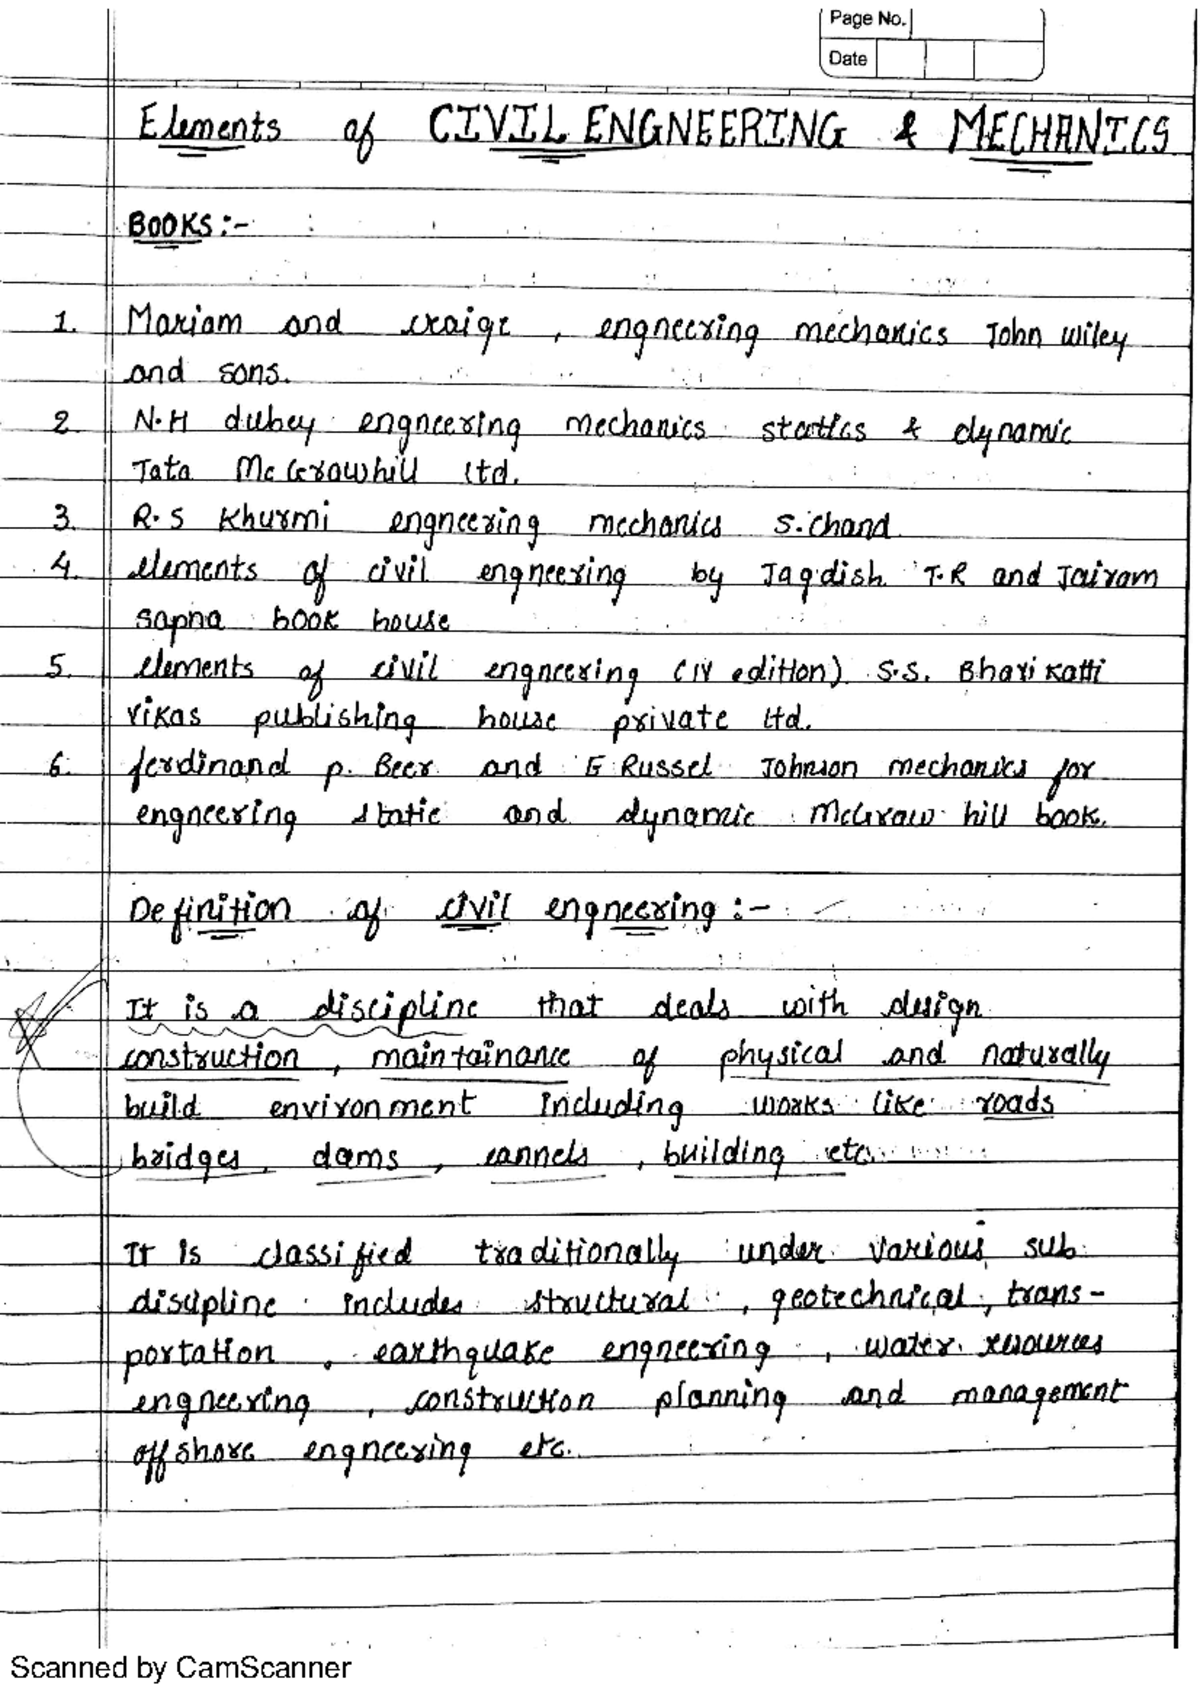 Page No.
Date
Elements of CIVIL ENGNEERING & MECHANICS
BOOKS:-
1. Mariam and craige , engneering mechanics John wiley
and sons.
2. N.H dubey engneering mechanics statics & dynamic
Tata McGrawhill ltd.
3. R.S Khurmi engneering mechanics S.chand
4. elements of civil engneering by Jagdish T.R and Jairam
sapna book house
5. elements of civil engneering (IV edition) S.S. Bhavikatti
vikas publishing house private ltd.
6. ferdinand p. Beer and E Russel Johnson mechanics for
engneering static and dynamic McGraw hill book.
Definition of civil engneering :-
It is a discipline that deals with design
construction , maintainance of physical and naturally
build environment including works like roads
bridges , dams , cannels , building etc.
It is classified traditionally under various sub
discipline includes structural , geotechnical , trans-
portation , earthquake engneering , water resources
engneering , construction planning and management
offshore engneering etc.
Scanned by CamScanner